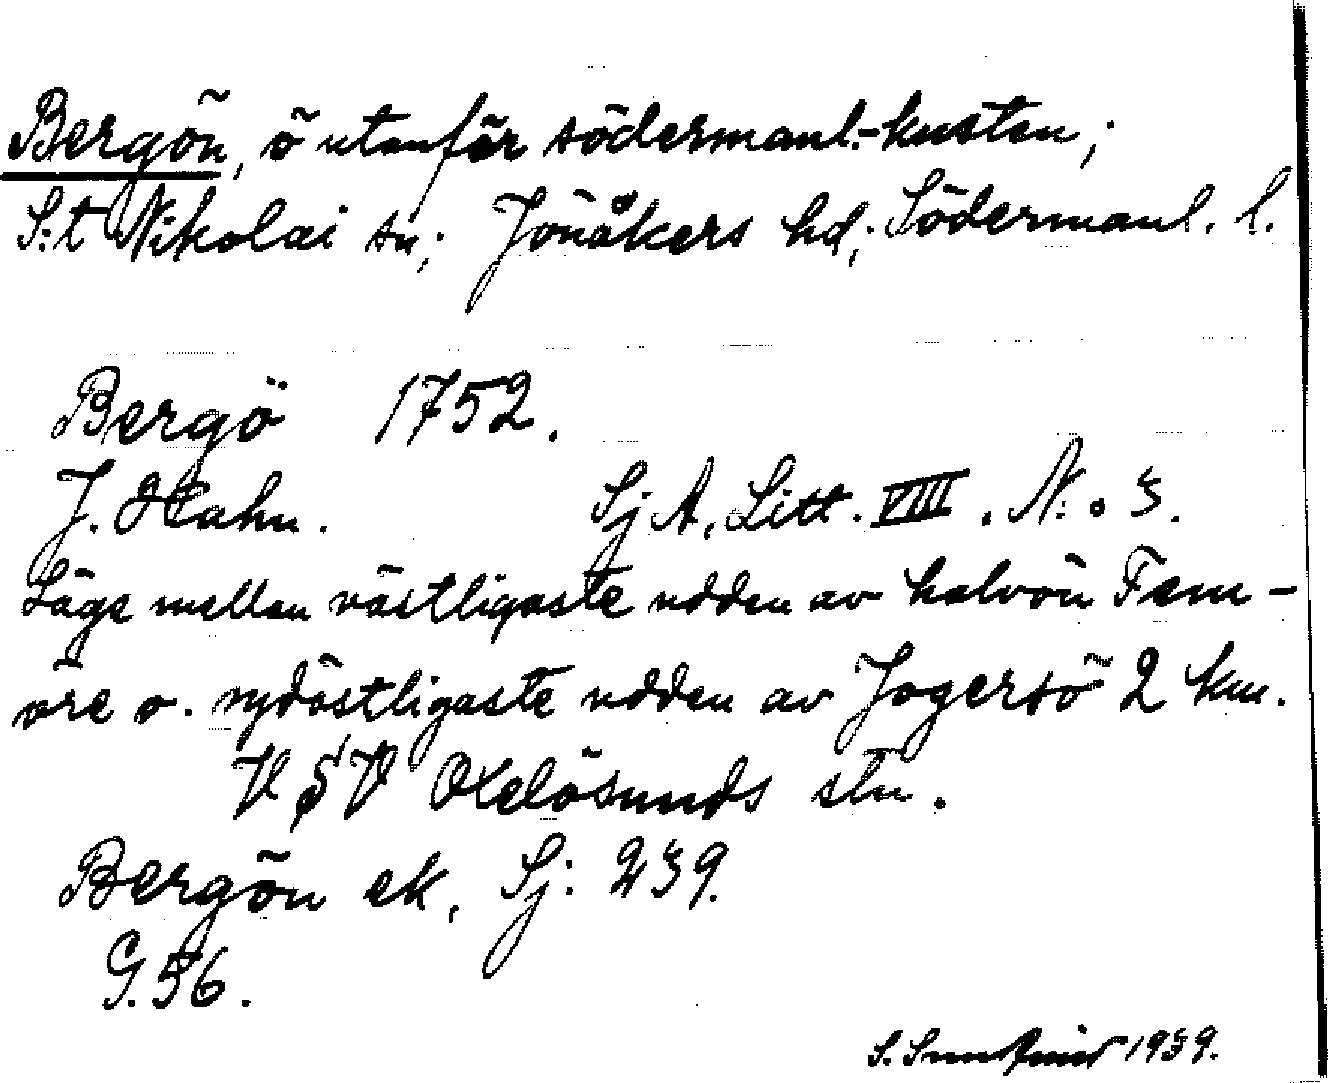 Bergön, ö utanför södermanl.-kusten;
S:t Nikolai sn; Jönåkers hd; Södermanl. l.
Bergö 1752.
J. Hahn. SjA, Litt. VIII. N:o 3.
Läge mellan västligaste udden av halvön Fem-
öre o. sydöstligaste udden av Jogersö 2 km.
V Oxelösunds stn.
Bergön ek, Sj: 239.
G. 56.
S. 1939.